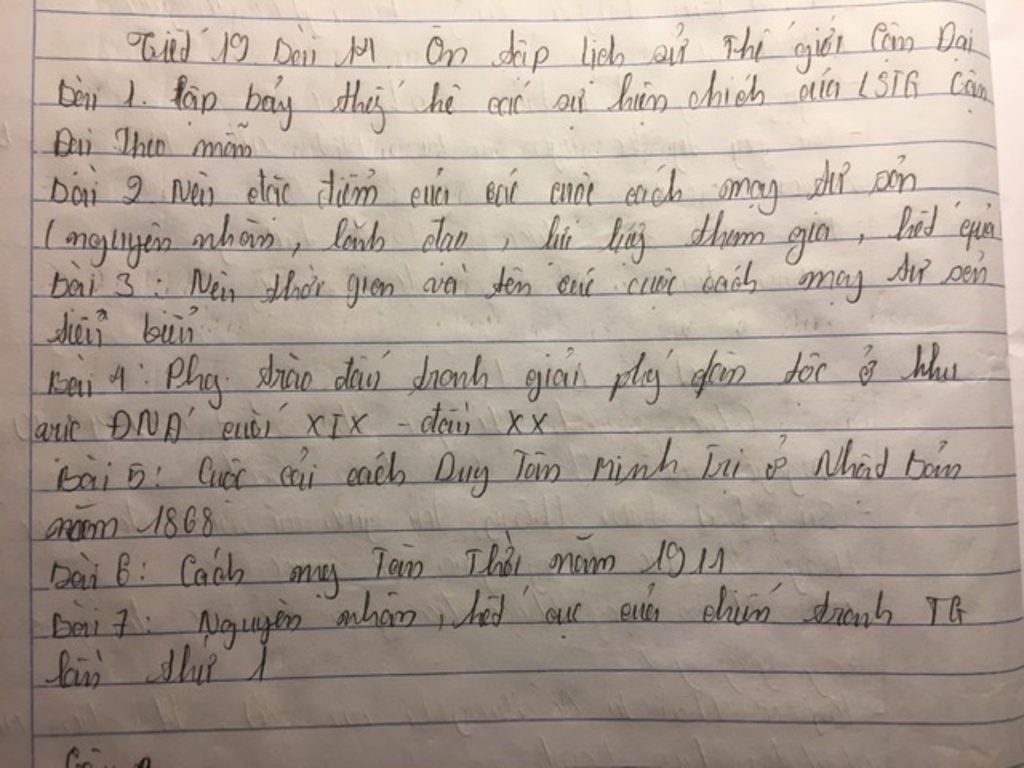 Tiết 19 Bài 14 Ôn tập lịch sử thế giới Cận Đại
Bài 1. Lập bảy thống kê các sự kiện chích của LSTG Cận
Đại Theo mẫu
Bài 2 Nêu đặc điểm của các cuộc cách mạng tư sản
(nguyên nhân, lãnh đạo, lực lượng tham gia, kết quả
Bài 3: Nêu thời gian và tên các cuộc cách mạng tư sản
tiểu biểu
Bài 4: Phg trào đấu tranh giải phóng dân tộc ở khu
vực ĐNÁ cuối XIX - đầu XX
Bài 5: Cuộc cải cách Duy Tân Minh Trị ở Nhật Bản
năm 1868
Bài 6: Cách mạng Tân Thời năm 1911
Bài 7: Nguyên nhân, kết cục của chiến tranh TG
lần thứ 1